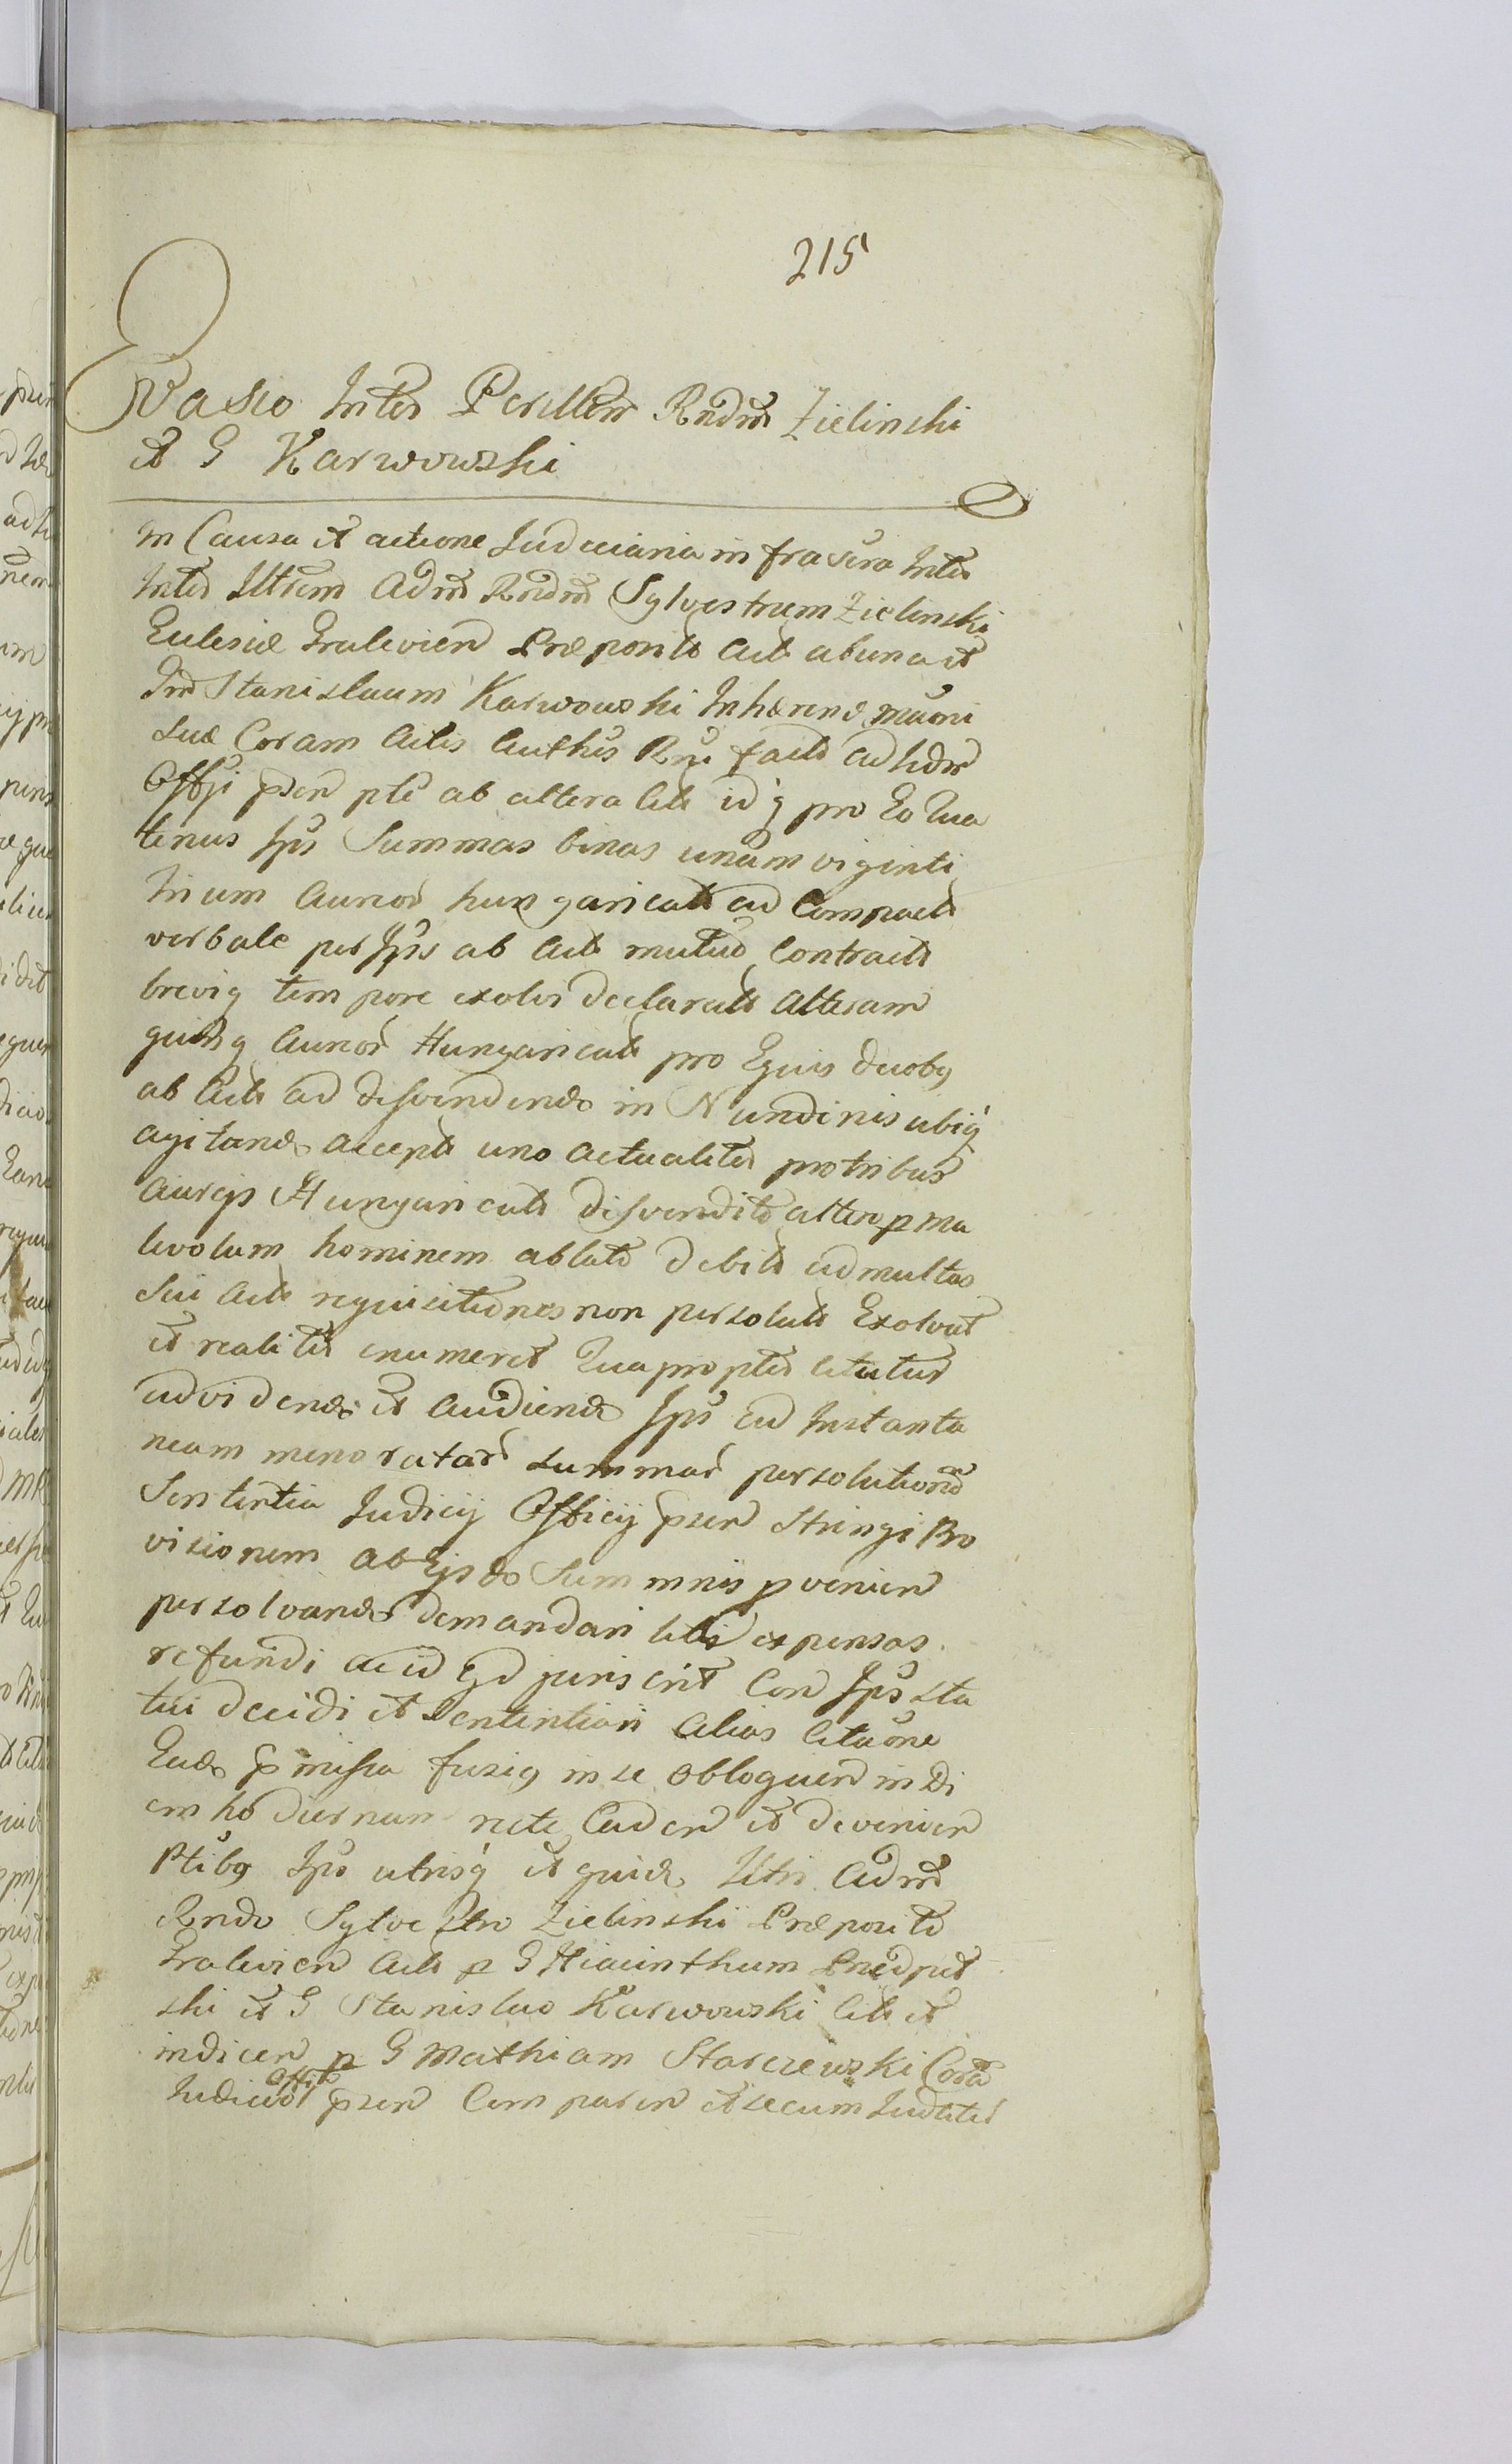 215
Evasio Inter Perillem Rndm Zielinski
et G Karwowski
In Causa et actione Judiciaria infrascra Inter
Inter Illrem Adm Rndm Sylvestrum Zielinski
Eclesiæ Graleviens Præpositu Acto ab una et
Gm Stanislaum Karwowski Inhærend
suæ Coram Actis Auths facto ad
Offij psen pte ab altera Cito idq pro Eo Qua
tenus Ips Summas binas unam viginti
trium Aureor hungaricali ad Compacto
verbale per Ips ab Acto mutuo Contracto
brevig tempore exolvi declarato Alteram
quinq Aureor Hungaricali pro Equis duobg
ab Acto ad disvendendo in Nundinis ubiq
agitando accepto uno actualiter pro tribus
Aureis Hungaricali disvendito altero p ma
levolum hominem ablato debito ad multas
sui Acto requisitiones non persoluto Exolvat
et realiter enumeret Quapropter Citatur
ad vidend et audiend Ips ad Instanta
neam memoratar summar persolutionem
Sententia Judicij Officij psen Stringi Pro
visionem ab Ejsdo Summis pvenien
persolvando demandari litis expensas
refundi ac id Qd juris erit Con Ips sta
tui decidi et sententiari Alias Citaone
Eado pmissa fusig in se obloquen in Di
em hodiernam recte Caden et devenien
Ptibg Ips utrisq et quide Illri Adm
Rndo Sylvestro Zielinski Præposito
Gralevien Acto p G Hiacinthum
ski et G Stanislao Karwowski Cito et
indicen p G Mathiam Starczewski Coram
Judicio Offij psen Comparen et secum Judliter